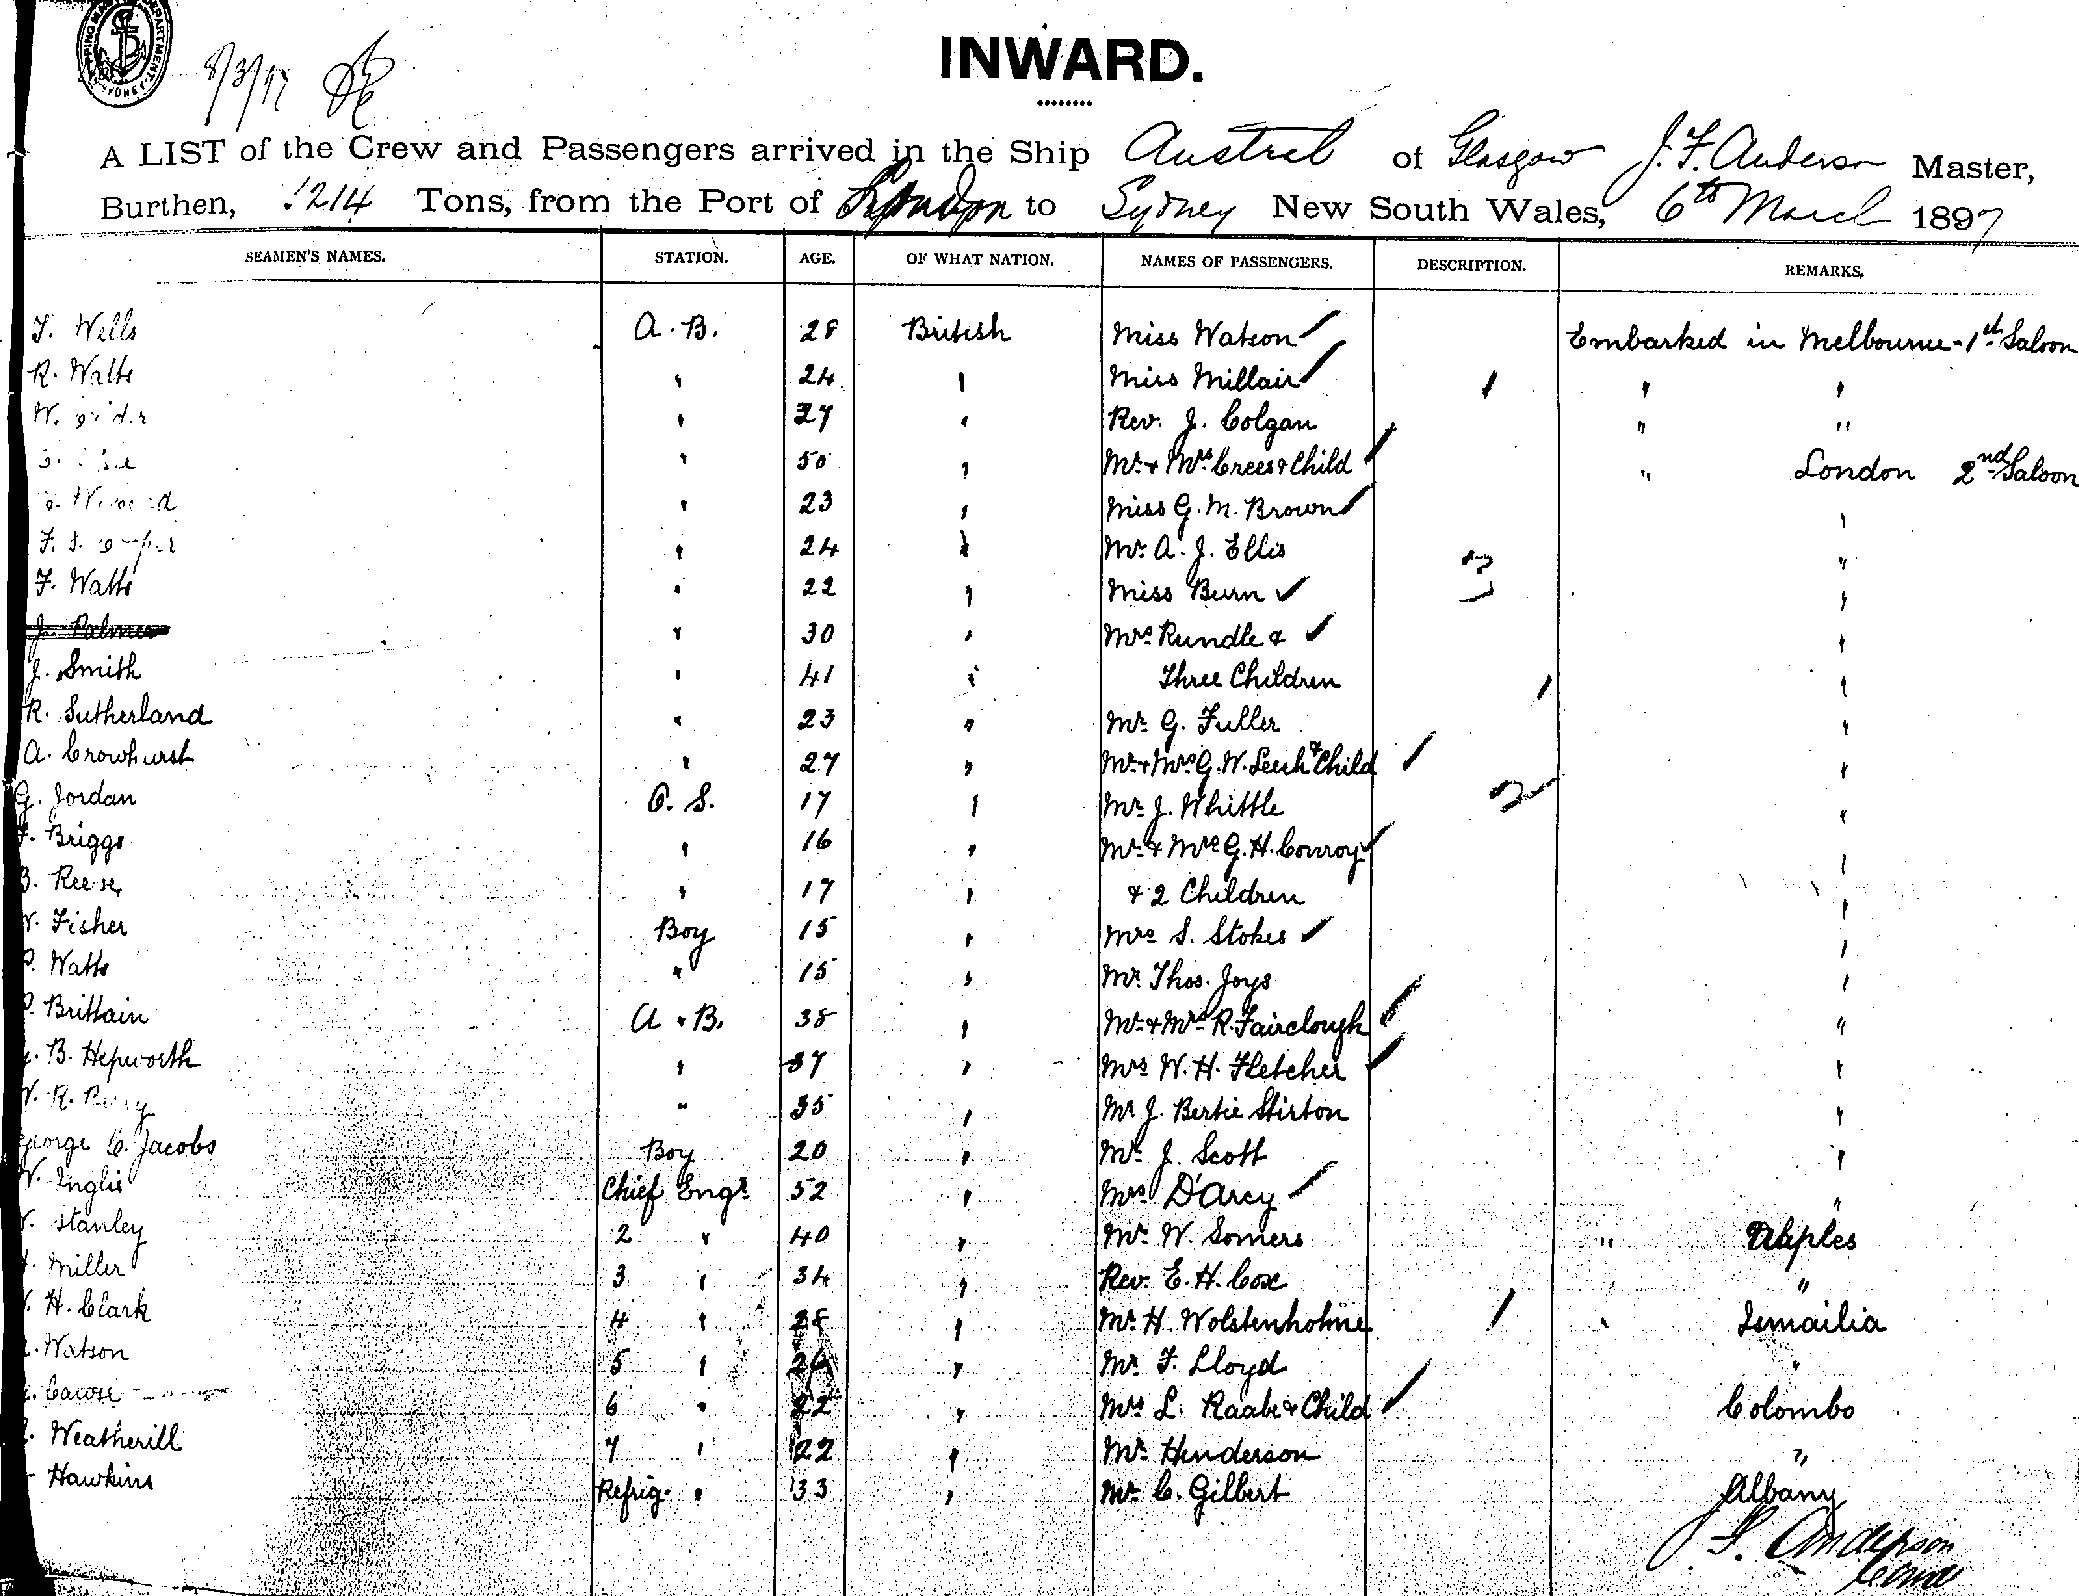 SHIPPING MASTER DEPARTMENT. SYDNEY
8/3/97
INWARD.
A LIST of the Crew and Passengers arrived in the Ship Austral of Glasgow J. F. Anderson Master,
Burthen, 3214 Tons, from the Port of London to Sydney New South Wales, 6th March 1897
SEAMEN'S NAMES. STATION. AGE. OF WHAT NATION. NAMES OF PASSENGERS. DESCRIPTION. REMARKS.
F. Wells A. B. 28 British Miss Watson Embarked in Melbourne - 1st Saloon
R. Watts " 24 " Miss Millair " "
W. 27 " Rev. J. Colgan " "
" 50 " Mr & Mrs Crees & Child " London 2nd Saloon
" 23 " Miss G. M. Brown "
F. " 24 " Mr A. J. Ellis 3 "
F. Watts " 22 " Miss Burn "
J. Palmer " 30 " Mrs Rundle & "
J. Smith " 41 " Three Children 1 "
R. Sutherland " 23 " Mr G. Fuller "
A. Crowhurst " 27 " Mr & Mrs G. W. Leech & Child "
G. Jordan O. S. 17 " Mr J. Whittle 2 "
F. Briggs " 16 " Mr & Mrs G. H. Conroy "
B. Reese " 17 " & 2 Children "
W. Fisher Boy 15 " Mrs S. Stokes "
P. Watts " 15 " Mr Thos. Joys "
P. Brittain A. B. 38 " Mr & Mrs R. Fairclough "
B. Hepworth " 37 " Mrs W. H. Fletcher "
W. R. " 35 " Mr J. Bertie Stirton "
George C. Jacobs Boy 20 " Mr J. Scott "
W. Inglis Chief Engr. 52 " Mrs D'Arcy "
Stanley 2 " 40 " Mr W. Somers " Naples
Miller 3 " 34 " Rev. E. H. Cox "
H. Clark 4 " 28 " Mr H. Wolstenholme 1 " Ismailia
Watson 5 " 26 " Mr F. Lloyd "
Cawse 6 " 22 " Mrs L. Raabe & Child Colombo
Weatherill 7 " 22 " Mr Henderson "
Hawkins Refrig. " 33 " Mr C. Gilbert Albany
J. F. Anderson